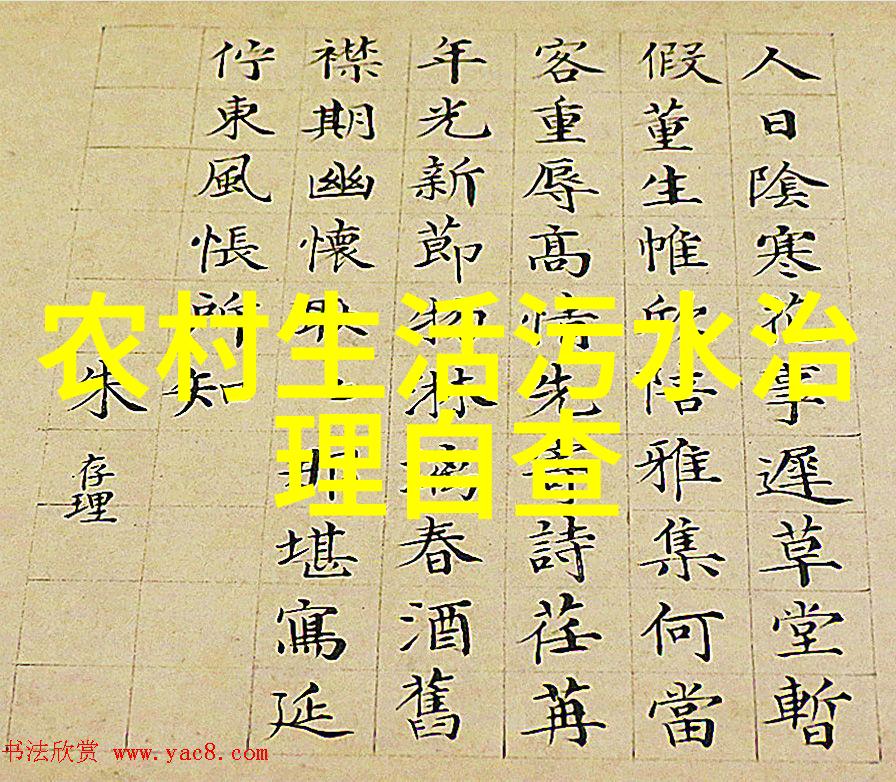 农村生活污水治
理自查
人日陰寒花事遲草堂暫
假董生帷欣陪雅集何當
客重辱高情先詩荏苒
年光新節物淋漓春酒舊
襟期幽懷耿那堪寫延
佇東風悵所知
朱存理
书法欣赏 www.yac8.com